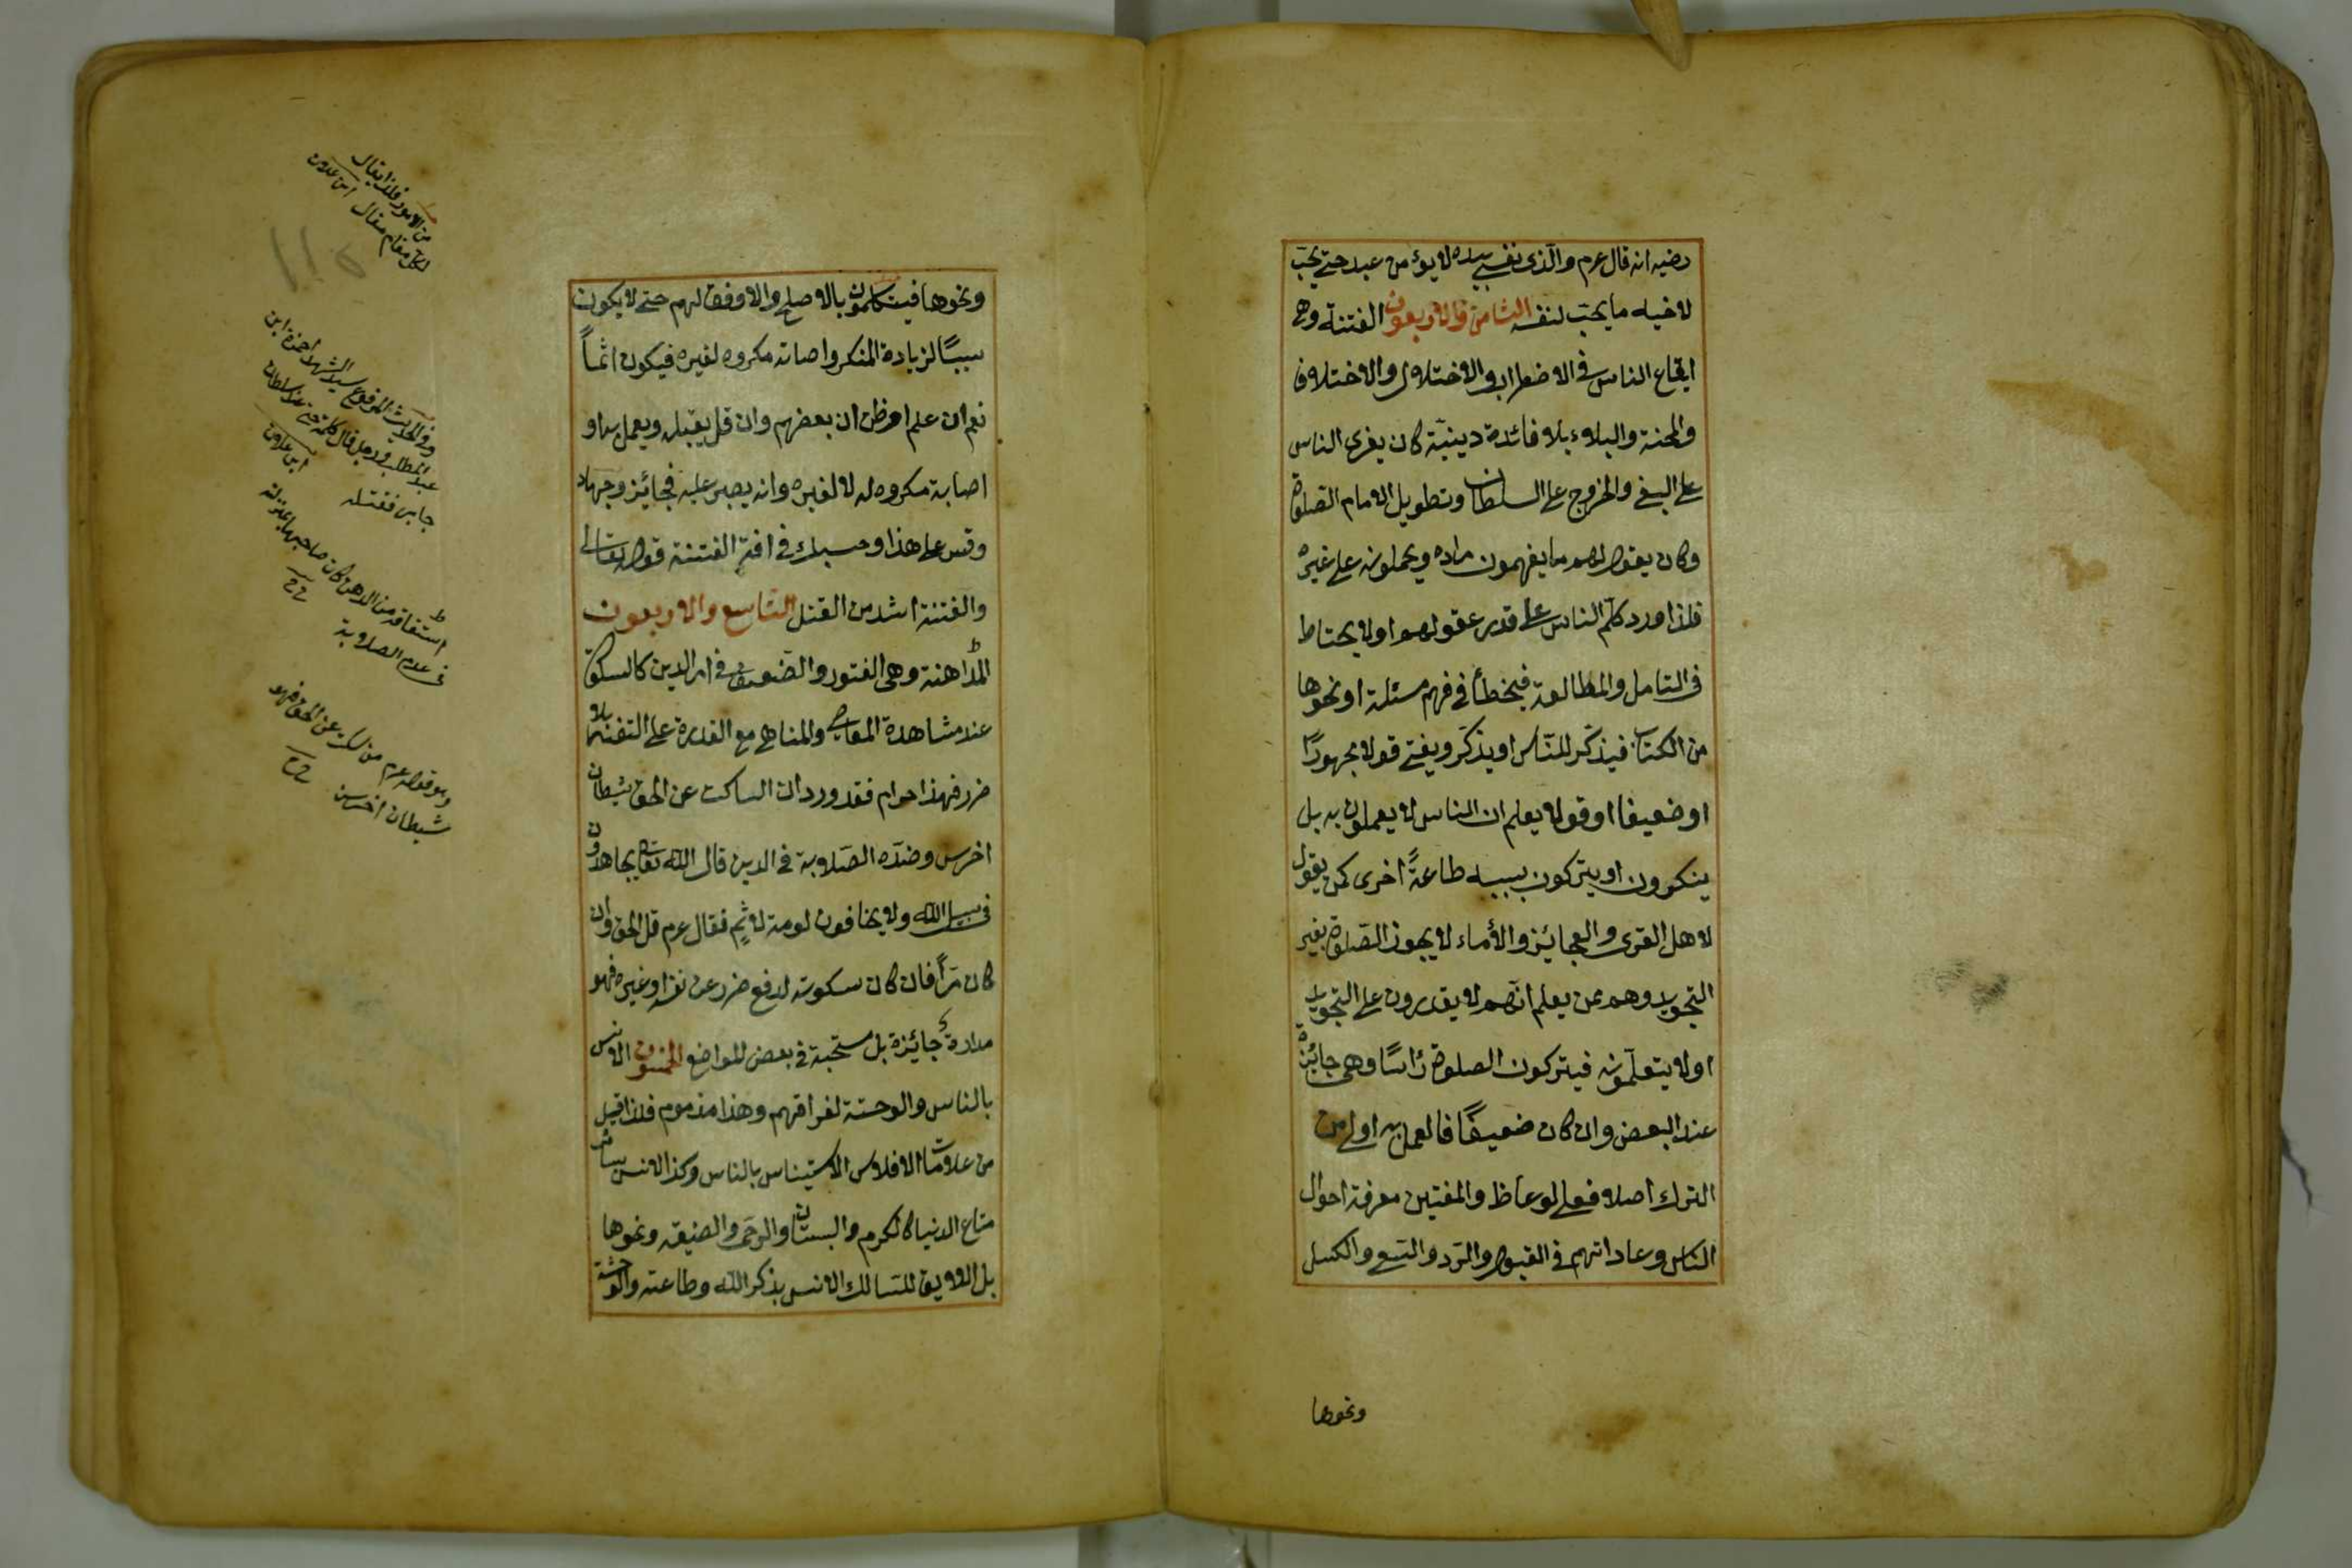 رضيه انه قال عرم والذى نفسى بيده لا يؤمن عبد حتى يحب
لاخيه ما يحب لنفسه الثامن والاربعون الفتنة وهى
ايقاع الناس فى الاضطراب والاختلال والاختلاف
والمحنة والبلاء بلا فائدة دينية كان يغرى الناس
على البغى والخروج على السلطان وتطويل الامام الصلوة
وكان يقول لهم ما يفهمون مراده ويحملونه على غيره
فلذا ورد كلم الناس على قدر عقولهم او لا يحتاط
فى التامل والمطالعة فيخطأ فى فهم مسئلة او نحوها
من الكتاب فيذكر للناس او يذكر ويفتى قولا مهجورًا
او ضعيفا او قولا يعلم ان الناس لا يعملون به بل
ينكرون او يتركون بسببه طاعةً اخرى كمن يقول
لاهل القرى والعجائز والأماء لا يجوز الصلوة بغير
التجويد وهم ممن يعلم انهم لا يقدرون على التجويد
او لا يتعلمونه فيتركون الصلوة رأسًا وهى جائزة
عند البعض وان كان ضعيفًا فالعمل به اولى من
الترك اصلا فعلى الوعاظ والمفتين معرفة احوال
الناس وعاداتهم فى القبول والرد والسعى والكسل
ونحوها
ونحوها فيتكلمون بالاصلح والاوفق لهم حتى لا يكون
سببًا لزيادة المنكر واصابة مكروه لغيره فيكون اثمًا
نعم ان علم او ظن ان بعضهم وان قل يقبله ويعمل به او
اصابة مكروه له لا لغيره وانه يصبر عليه فجائز وجهاد
وقس على هذا وحسبك فى افة الفتنة قوله تعالى
والفتنة اشد من القتل التاسع والاربعون
المداهنة وهى الفتور والضعف فى امر الدين كالسكوت
عند مشاهدة المعاصى والمناهى مع القدرة على التغيير بلا
ضرر فهذا حرام فقد ورد ان الساكت عن الحق شيطان
اخرس وضده الصلابة فى الدين قال الله تعالى يجاهدون
فى سبيل الله ولا يخافون لومة لائم فقال عرم قل الحق وان
كان مرًا فان كان سكوته لدفع ضرر عن نفسه او غيره فهو
مداراة جائزة بل مستحبة فى بعض المواضع الخمسون الانس
بالناس والوحشة لفراقهم وهذا مذموم فلذا قيل
من علامات الافلاس الاستيناس بالناس وكذا الانس بسائر
متاع الدنيا كالكرم والبستان والرحى والضيعة ونحوها
بل اللايق للسالك الانس بذكر الله وطاعته والوحشة
من الامور فلذا يقال
لكل مقام مقال
وفى الحديث المرفوع سيد الشهداء حمزة ابن
عبد المطلب ورجل قال كلمة حق عند سلطان
جابر فقتله
فى عدم الصلابة
وهو قوله عرم من سكت عن الحق فهو
شيطان اخرس